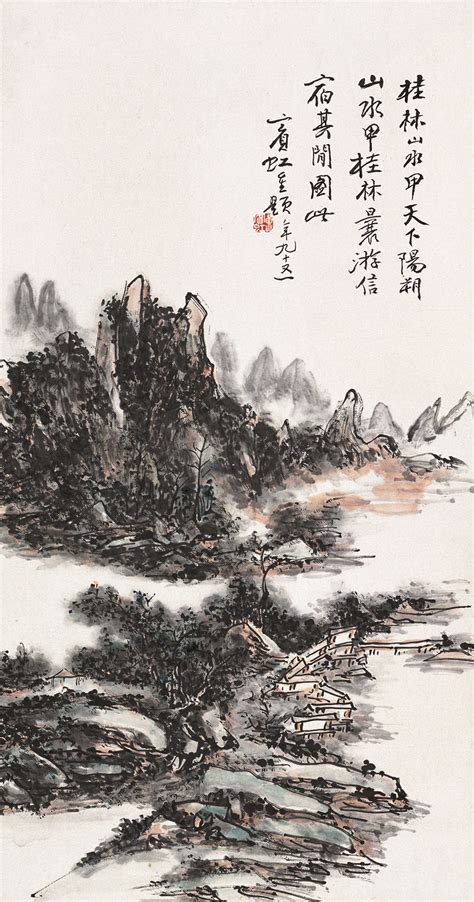 桂林山水甲天下陽朔
山水甲桂林曩游信
宿其閒圖此
賓虹重題年九十又一